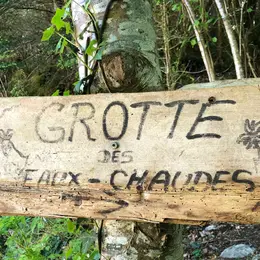 GROTTE
DÈS
EAUX-CHAUDES